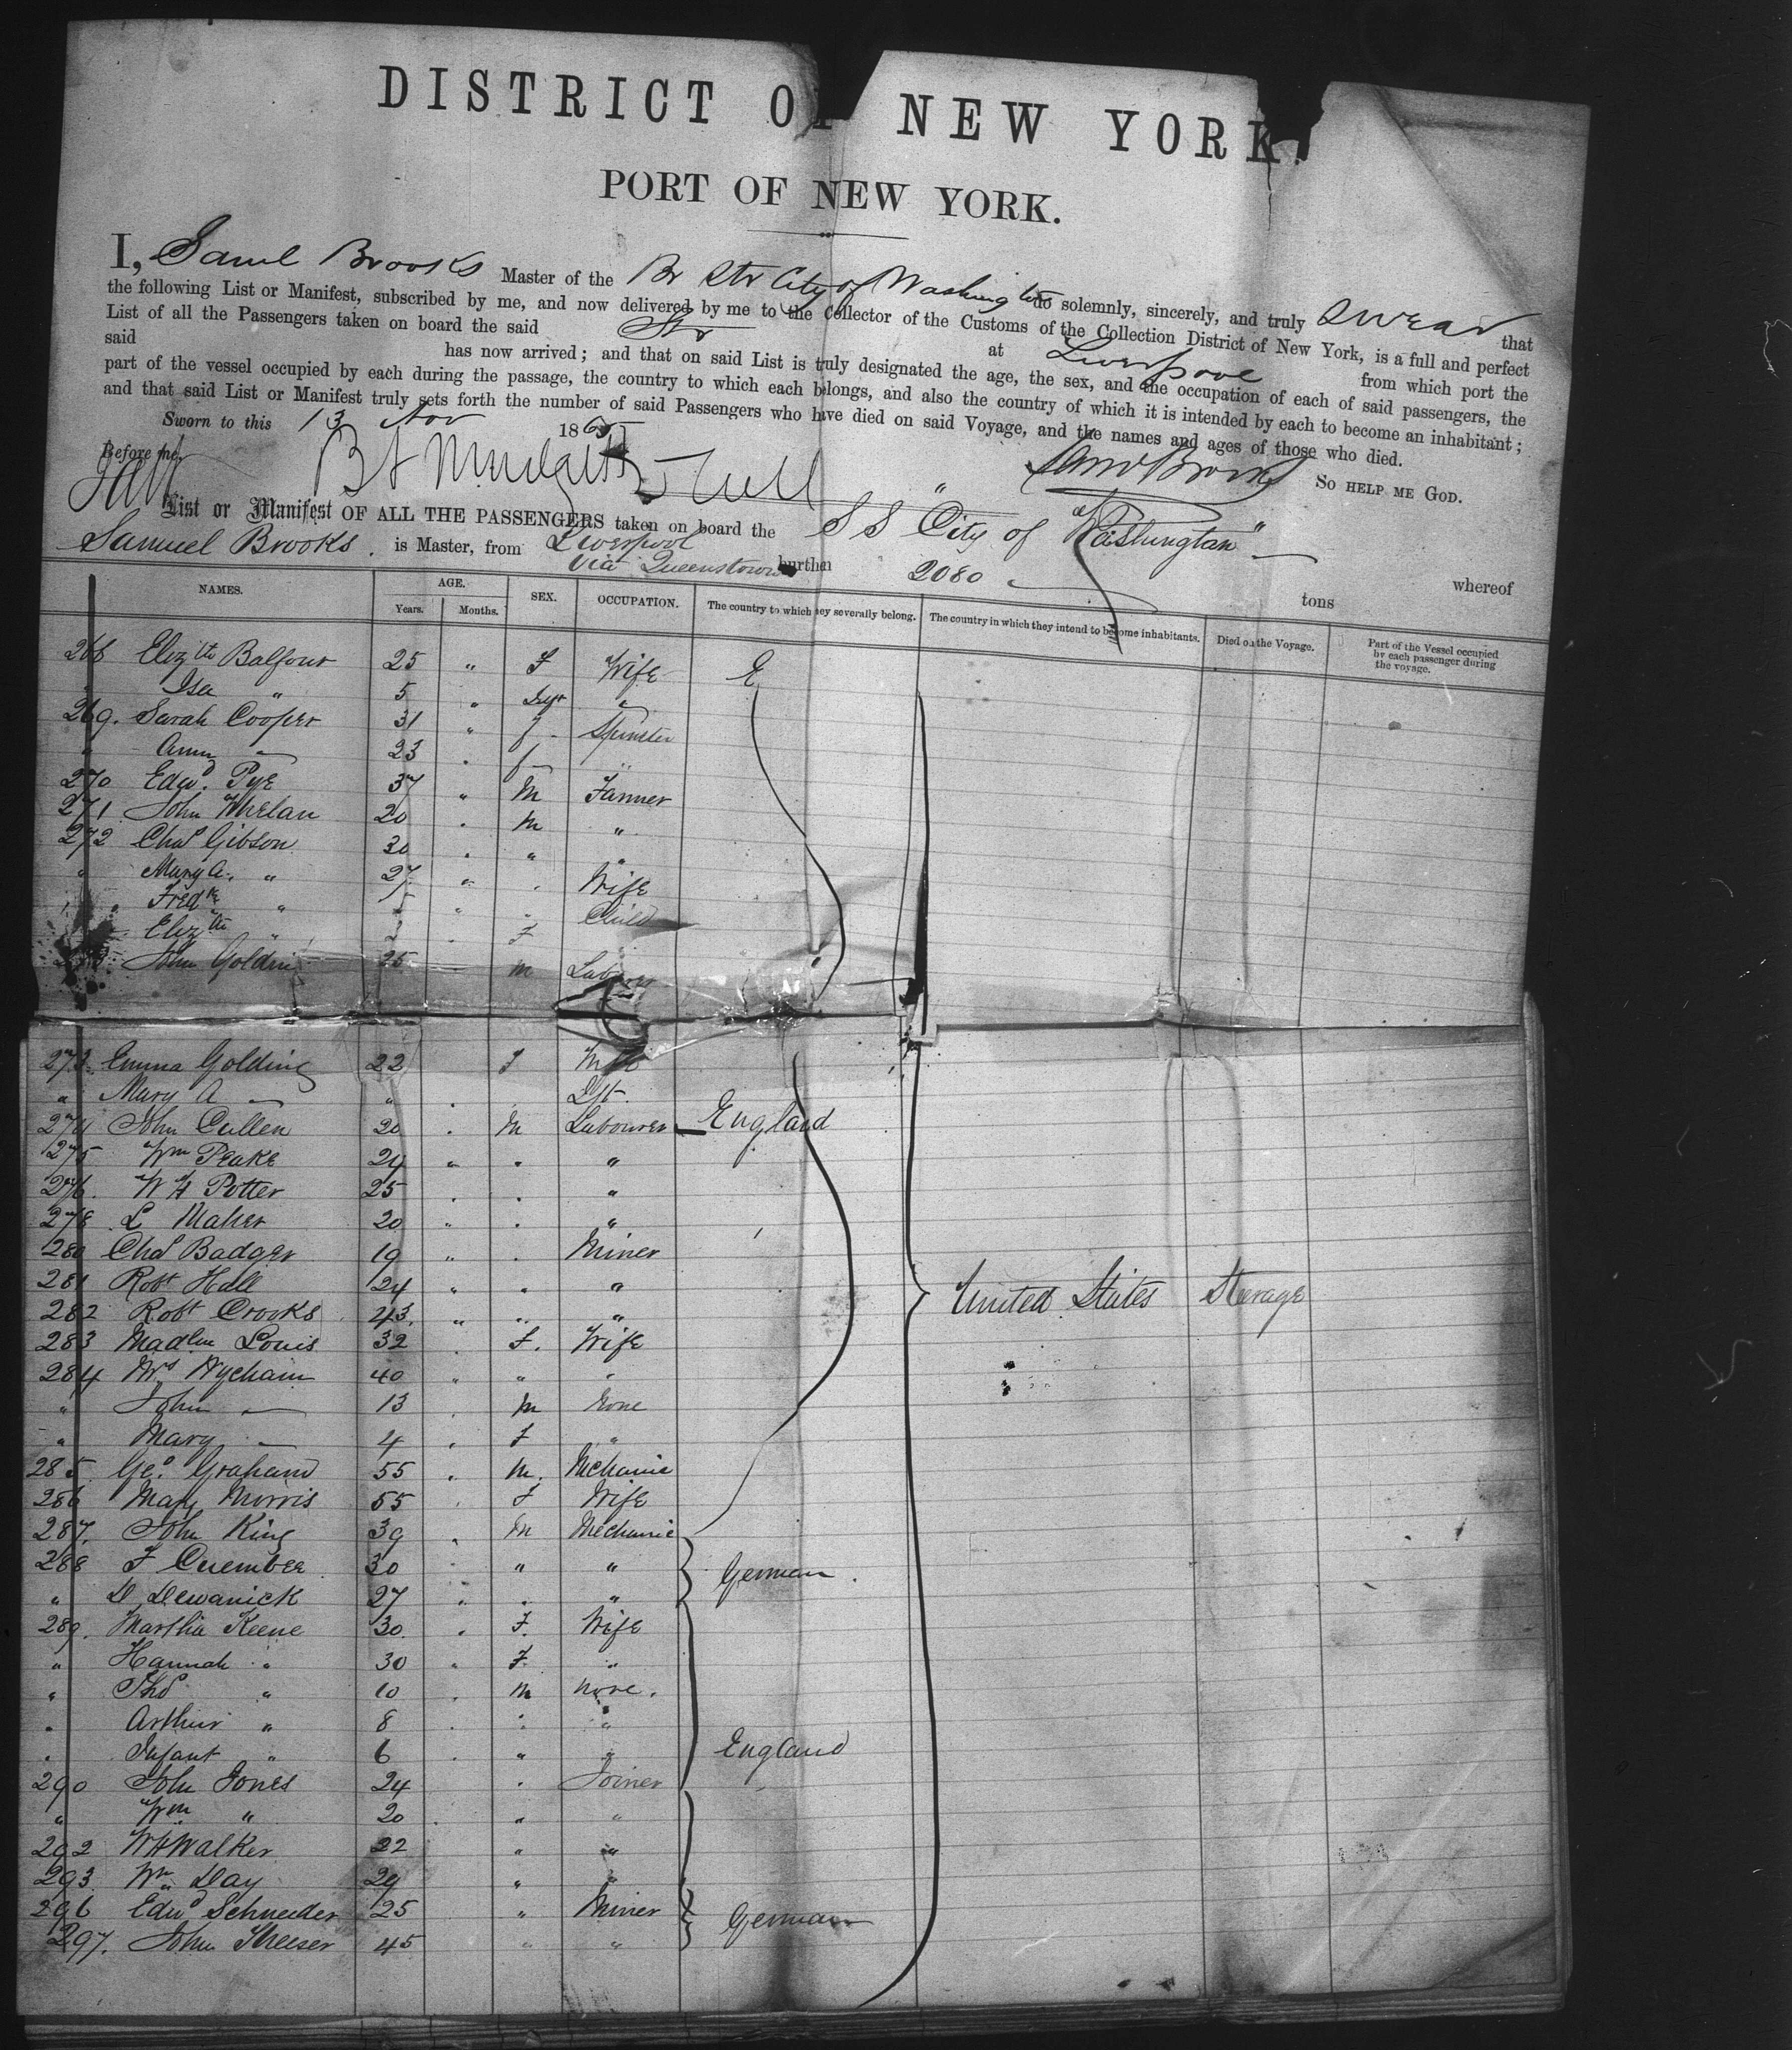 DISTRICT OF NEW YORK.
PORT OF NEW YORK.
I, Saml Brooks Master of the Br Str City of Washington do solemnly, sincerely, and truly Swear that
the following List or Manifest, subscribed by me, and now delivered by me to the Collector of the Customs of the Collection District of New York, is a full and perfect
List of all the Passengers taken on board the said Str at Liverpool from which port the
said has now arrived; and that on said List is truly designated the age, the sex, and the occupation of each of said passengers, the
part of the vessel occupied by each during the passage, the country to which each belongs, and also the country of which it is intended by each to become an inhabitant;
and that said List or Manifest truly sets forth the number of said Passengers who have died on said Voyage, and the names and ages of those who died.
Sworn to this 13 Nov 1865 So HELP ME GOD.
Before me, Saml Brooks
List or Manifest OF ALL THE PASSENGERS taken on board the SS "City of Washington" whereof
Samuel Brooks. is Master, from Liverpool via Queenstown burthen 2080 tons
NAMES. AGE. SEX. OCCUPATION. The country to which they severally belong. The country in which they intend to become inhabitants. Died on the Voyage. Part of the Vessel occupied by each passenger during the voyage.
Years. Months.
268 Elizth Balfour 25 " F Wife E
" Isa " 5 " "
269. Sarah Cooper 31 " f Spinster
" — 23 " f "
270 Edwd. Pye 37 " M Farmer
271 John Whelan 20 " M "
272 Chas Gibson 30 " " "
" Mary A. " 27 " " Wife
" Fredk " " " Child
" Elizth " " F
John Golding 25 M Labourer
273 Emma Golding 22 F Wife
" Mary A — " Dt
274 John Cullen 20 " M Labourer England
275 Wm Peake 24 " " "
276. W H Potter 25 " " "
278 L Maher 20 " " "
280 Chas Badger 19 " " Miner
281 Robt Hall 24 " " "
282 Robt Crooks 43. " " "
283 Madlne Louis 32 " F. Wife
284 Mrs Wycham 40 " " " United States Sterage
" John — 13 " M None
" Mary — 4 " F "
285 Geo. Graham 55 " M. Mchanic
286 Mary Morris 55 " F Wife
287. John King 39 " M Mechanic
288 F Cuember 30 " " " German
" D Dewanick 27 " " "
289. Martha Keene 30. " F. Wife
" Hannah " 30 " F. "
" Thos " 10 " M none.
" Arthur " 8 " " "
" Infant " 6 " " " England
290 John Jones 24 " Joiner
" Wm " 20 " " "
292 WH Walker 22 " "
293. Wm Day 29 " "
296 Edwd Schneeder 25 " Miner German
297. John Theeser 45 " "